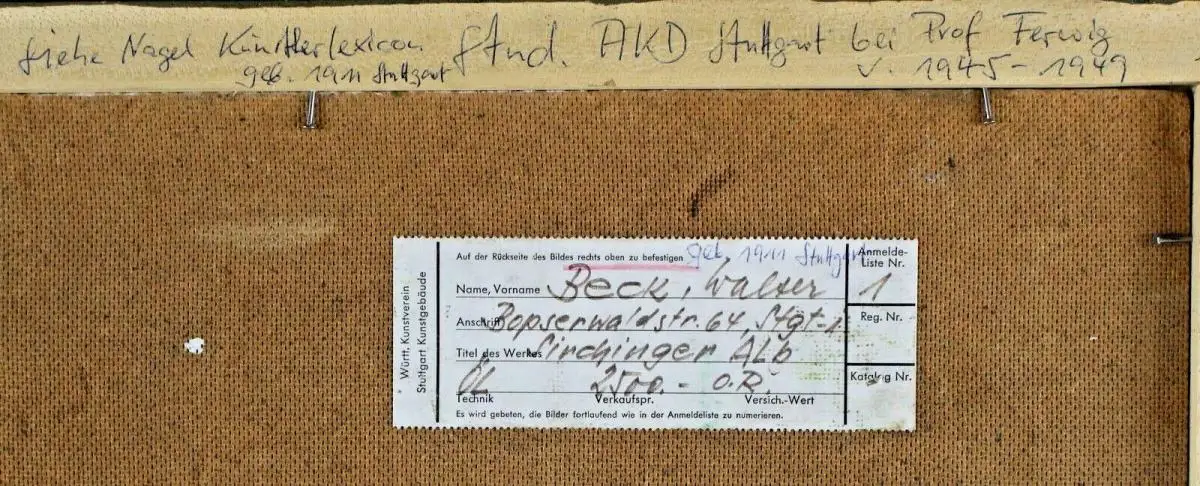 siehe Nagel Künstlerlexicon Stud. AKD Stuttgart bei Prof
geb. 1911 Stuttgart v. 1945-1949
Württ. Kunstverein
Stuttgart Kunstgebäude
Auf der Rückseite des Bildes rechts oben zu befestigen geb. 1911 Stuttgart
Name, Vorname Beck, Walter
Anschrift Bopserwaldstr. 64, Stgt-1
Titel des Werkes Sirchinger Alb
ÖL 2500.- O.R.
Technik Verkaufspr. Versich.-Wert
Es wird gebeten, die Bilder fortlaufend wie in der Anmeldeliste zu numerieren.
Anmelde-
Liste Nr.
1
Reg. Nr.
Katalog Nr.